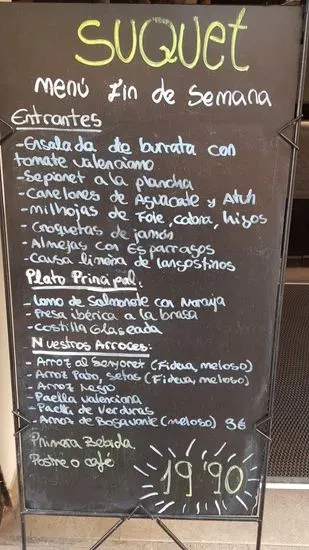 SUQUET
Menú Fin de Semana
Entrantes
- Ensalada de burrata con
tomate valenciano
- Sepionet a la plancha
- Canelones de Aguacate y Atún
- Milhojas de Foie, cabra, higos
- Croquetas de jamón
- Almejas con Esparragos
- Causa limeña de langostinos
Plato Principal:
- Lomo de Salmonete con Naranja
- Presa ibérica a la brasa
- Costilla Glaseada
Nuestros Arroces:
- Arroz al Senyoret (Fideua, meloso)
- Arroz Pato, setas (Fideua, meloso)
- Arroz Negro
- Paella Valenciana
- Paella de Verduras
- Arroz de Bogavante (meloso) 3€
Primera Bebida
Postre o café
19'90